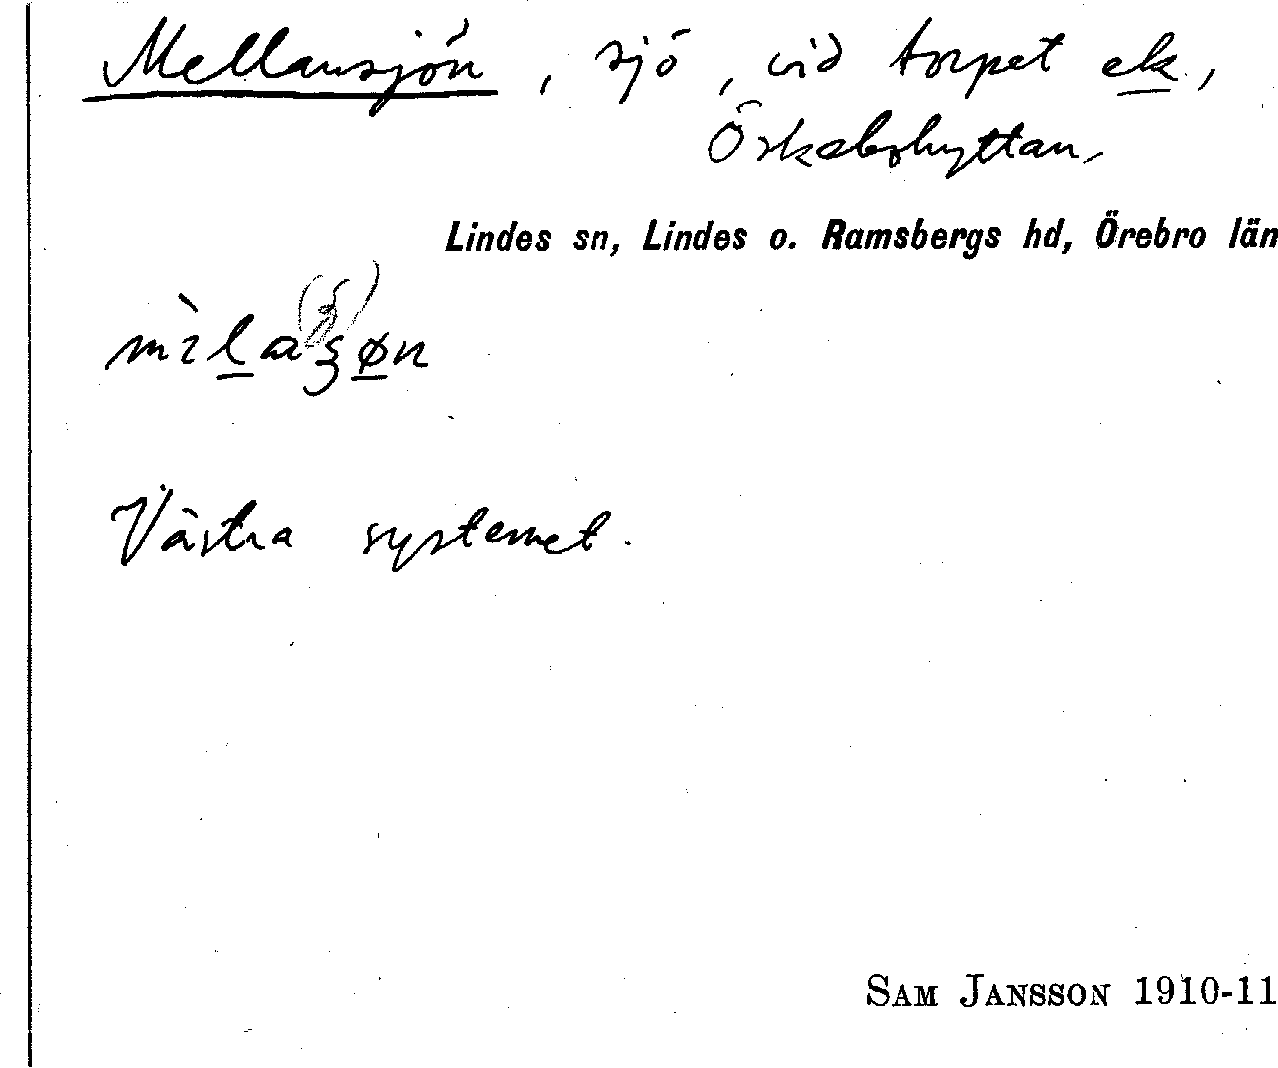 Mellansjön, sjö, vid torpet ek,
Öskebohyttan,
Lindes sn, Lindes o. Ramsbergs hd, Örebro län
Västra systemet.
SAM JANSSON 1910-11